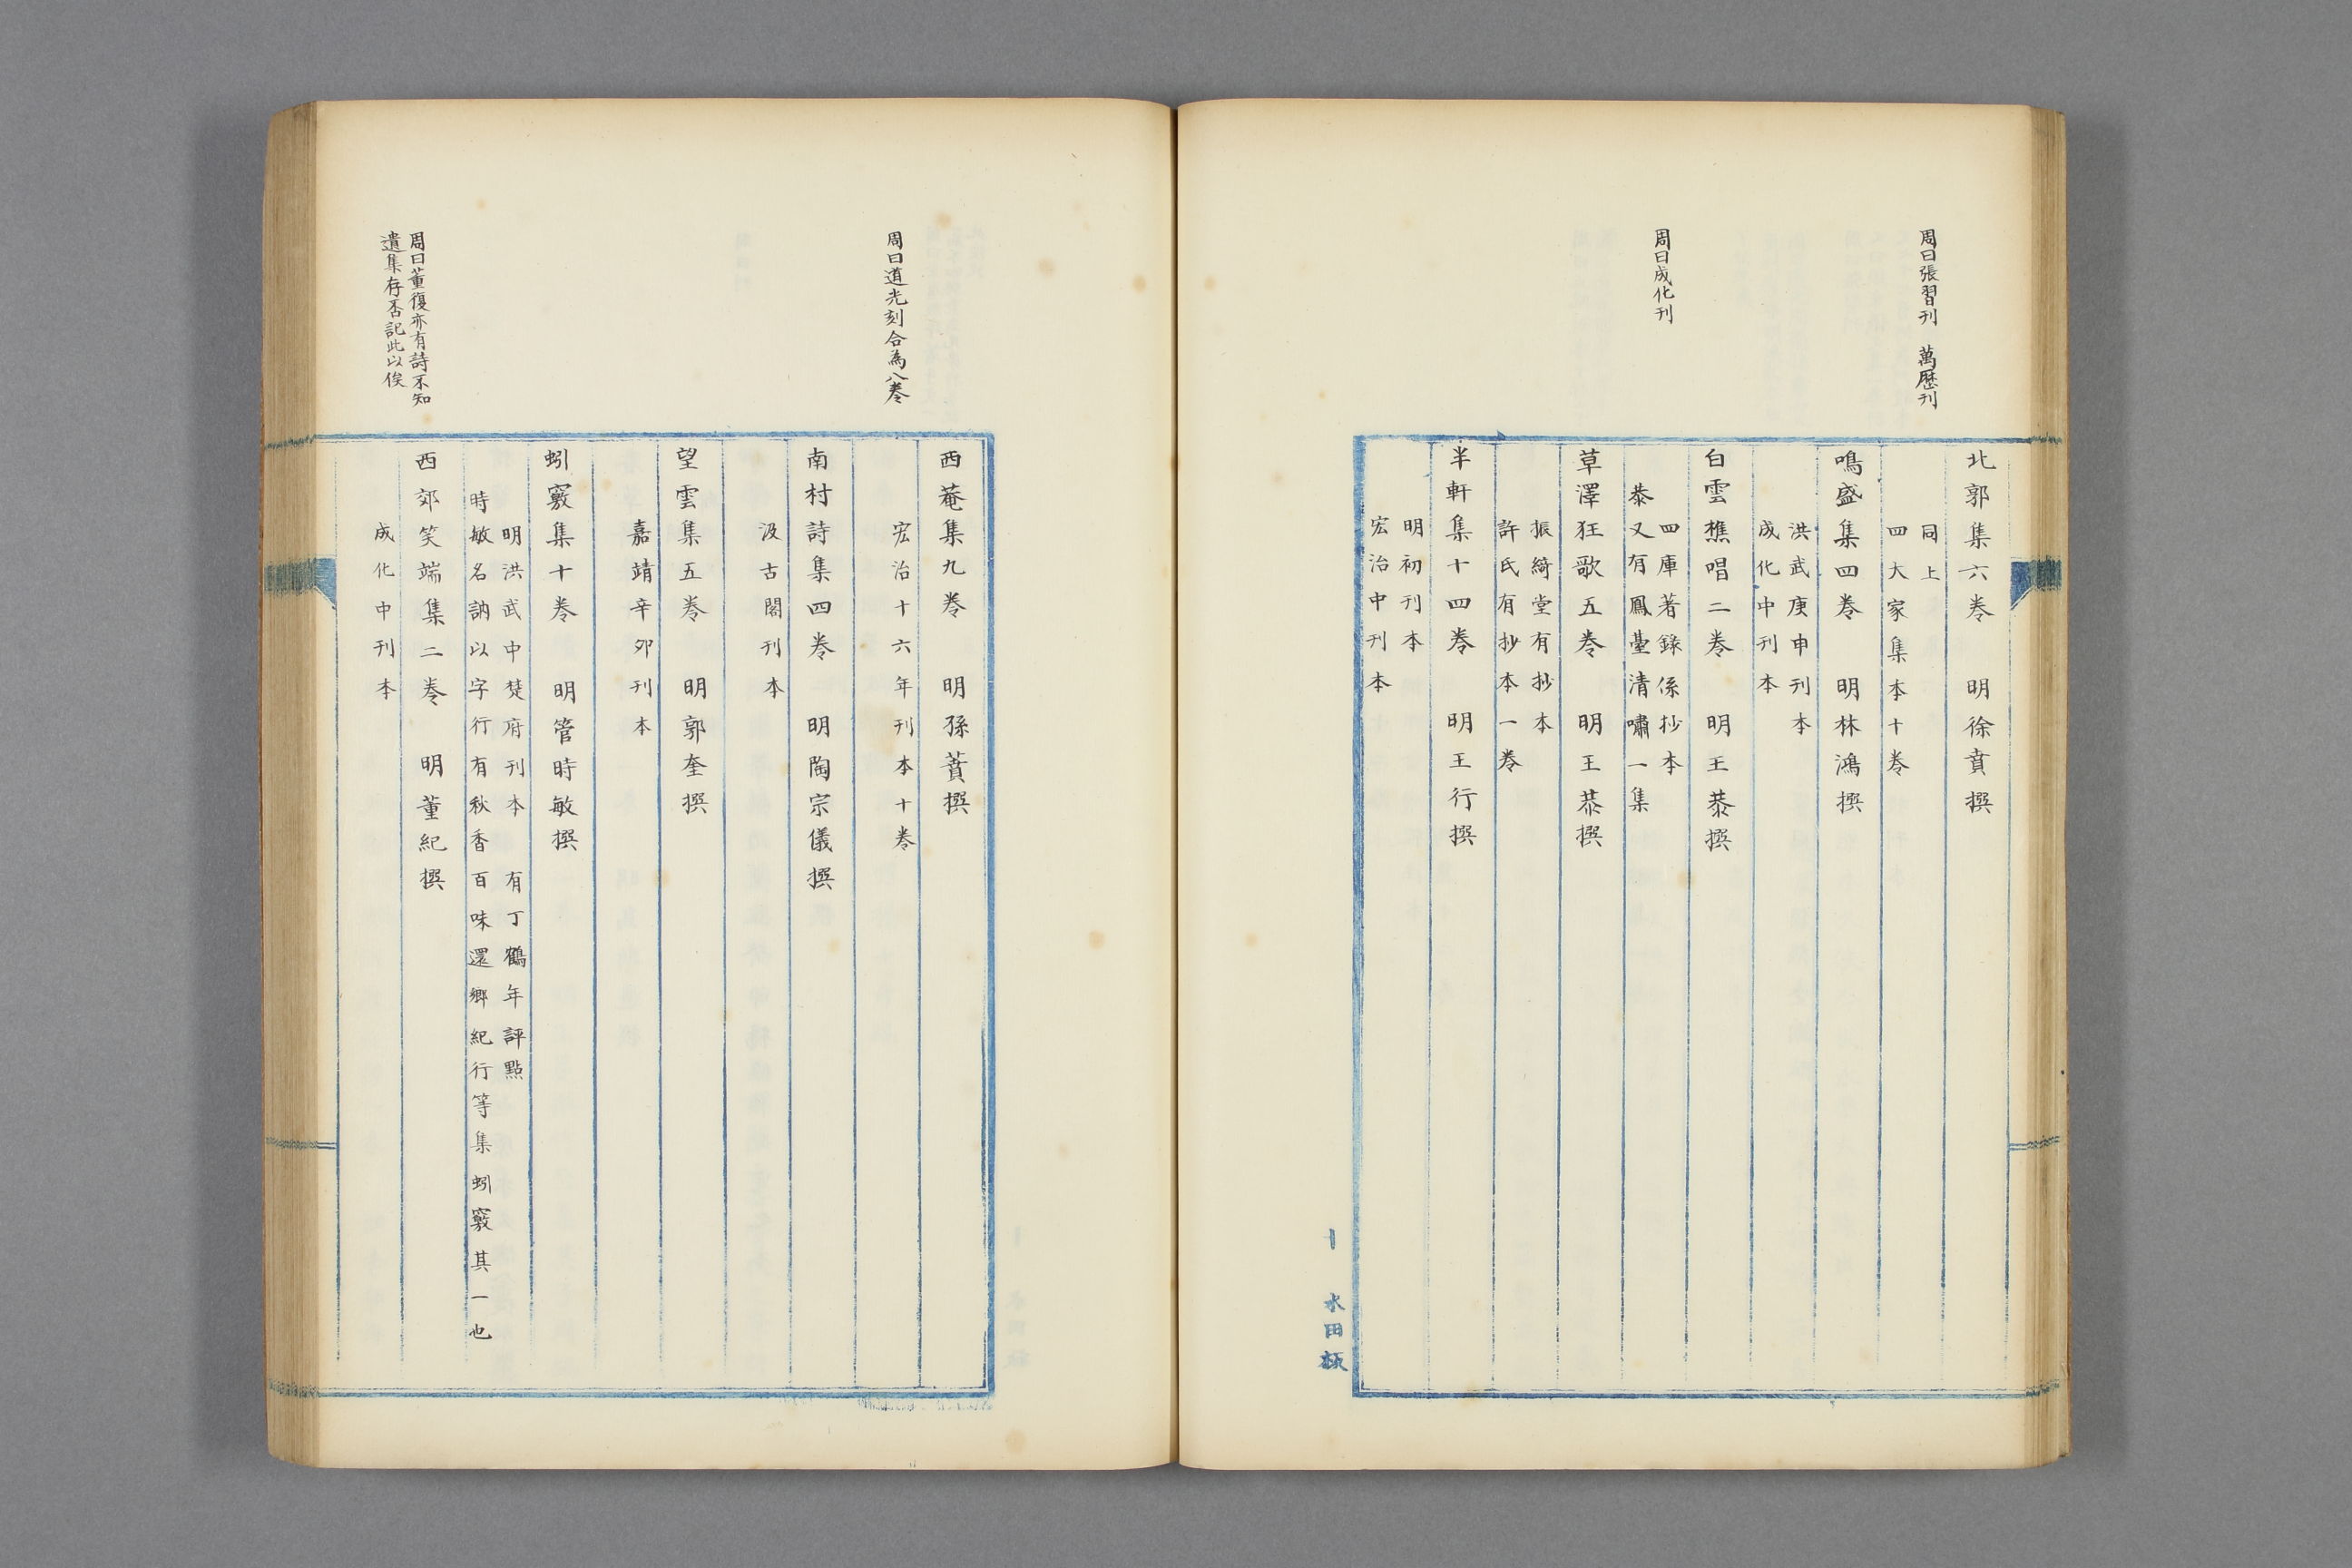 周曰張習刊　萬歷刊
周曰成化刊
北郭集六卷　明徐賁撰
同上
四大家集本十卷
鳴盛集四卷　明林鴻撰
洪武庚申刊本
成化中刊本
白雲樵唱二卷　明王恭撰
四庫著錄係抄本
恭又有鳳臺清嘯一集
草澤狂歌五卷　明王恭撰
振綺堂有抄本
許氏有抄本一卷
半軒集十四卷　明王行撰
明初刊本
宏治中刊本
十　水田板
周曰道光刻合為八卷
周曰董復亦有詩不知
遺集存否記此以俟
西菴集九卷　明孫蕡撰
宏治十六年刊本十卷
南村詩集四卷　明陶宗儀撰
汲古閣刊本
望雲集五卷　明郭奎撰
嘉靖辛卯刊本
蚓竅集十卷　明管時敏撰
明洪武中楚府刊本　有丁鶴年評點
時敏名訥以字行有秋香百味還鄉紀行等集蚓竅其一也
西郊笑端集二卷　明董紀撰
成化中刊本